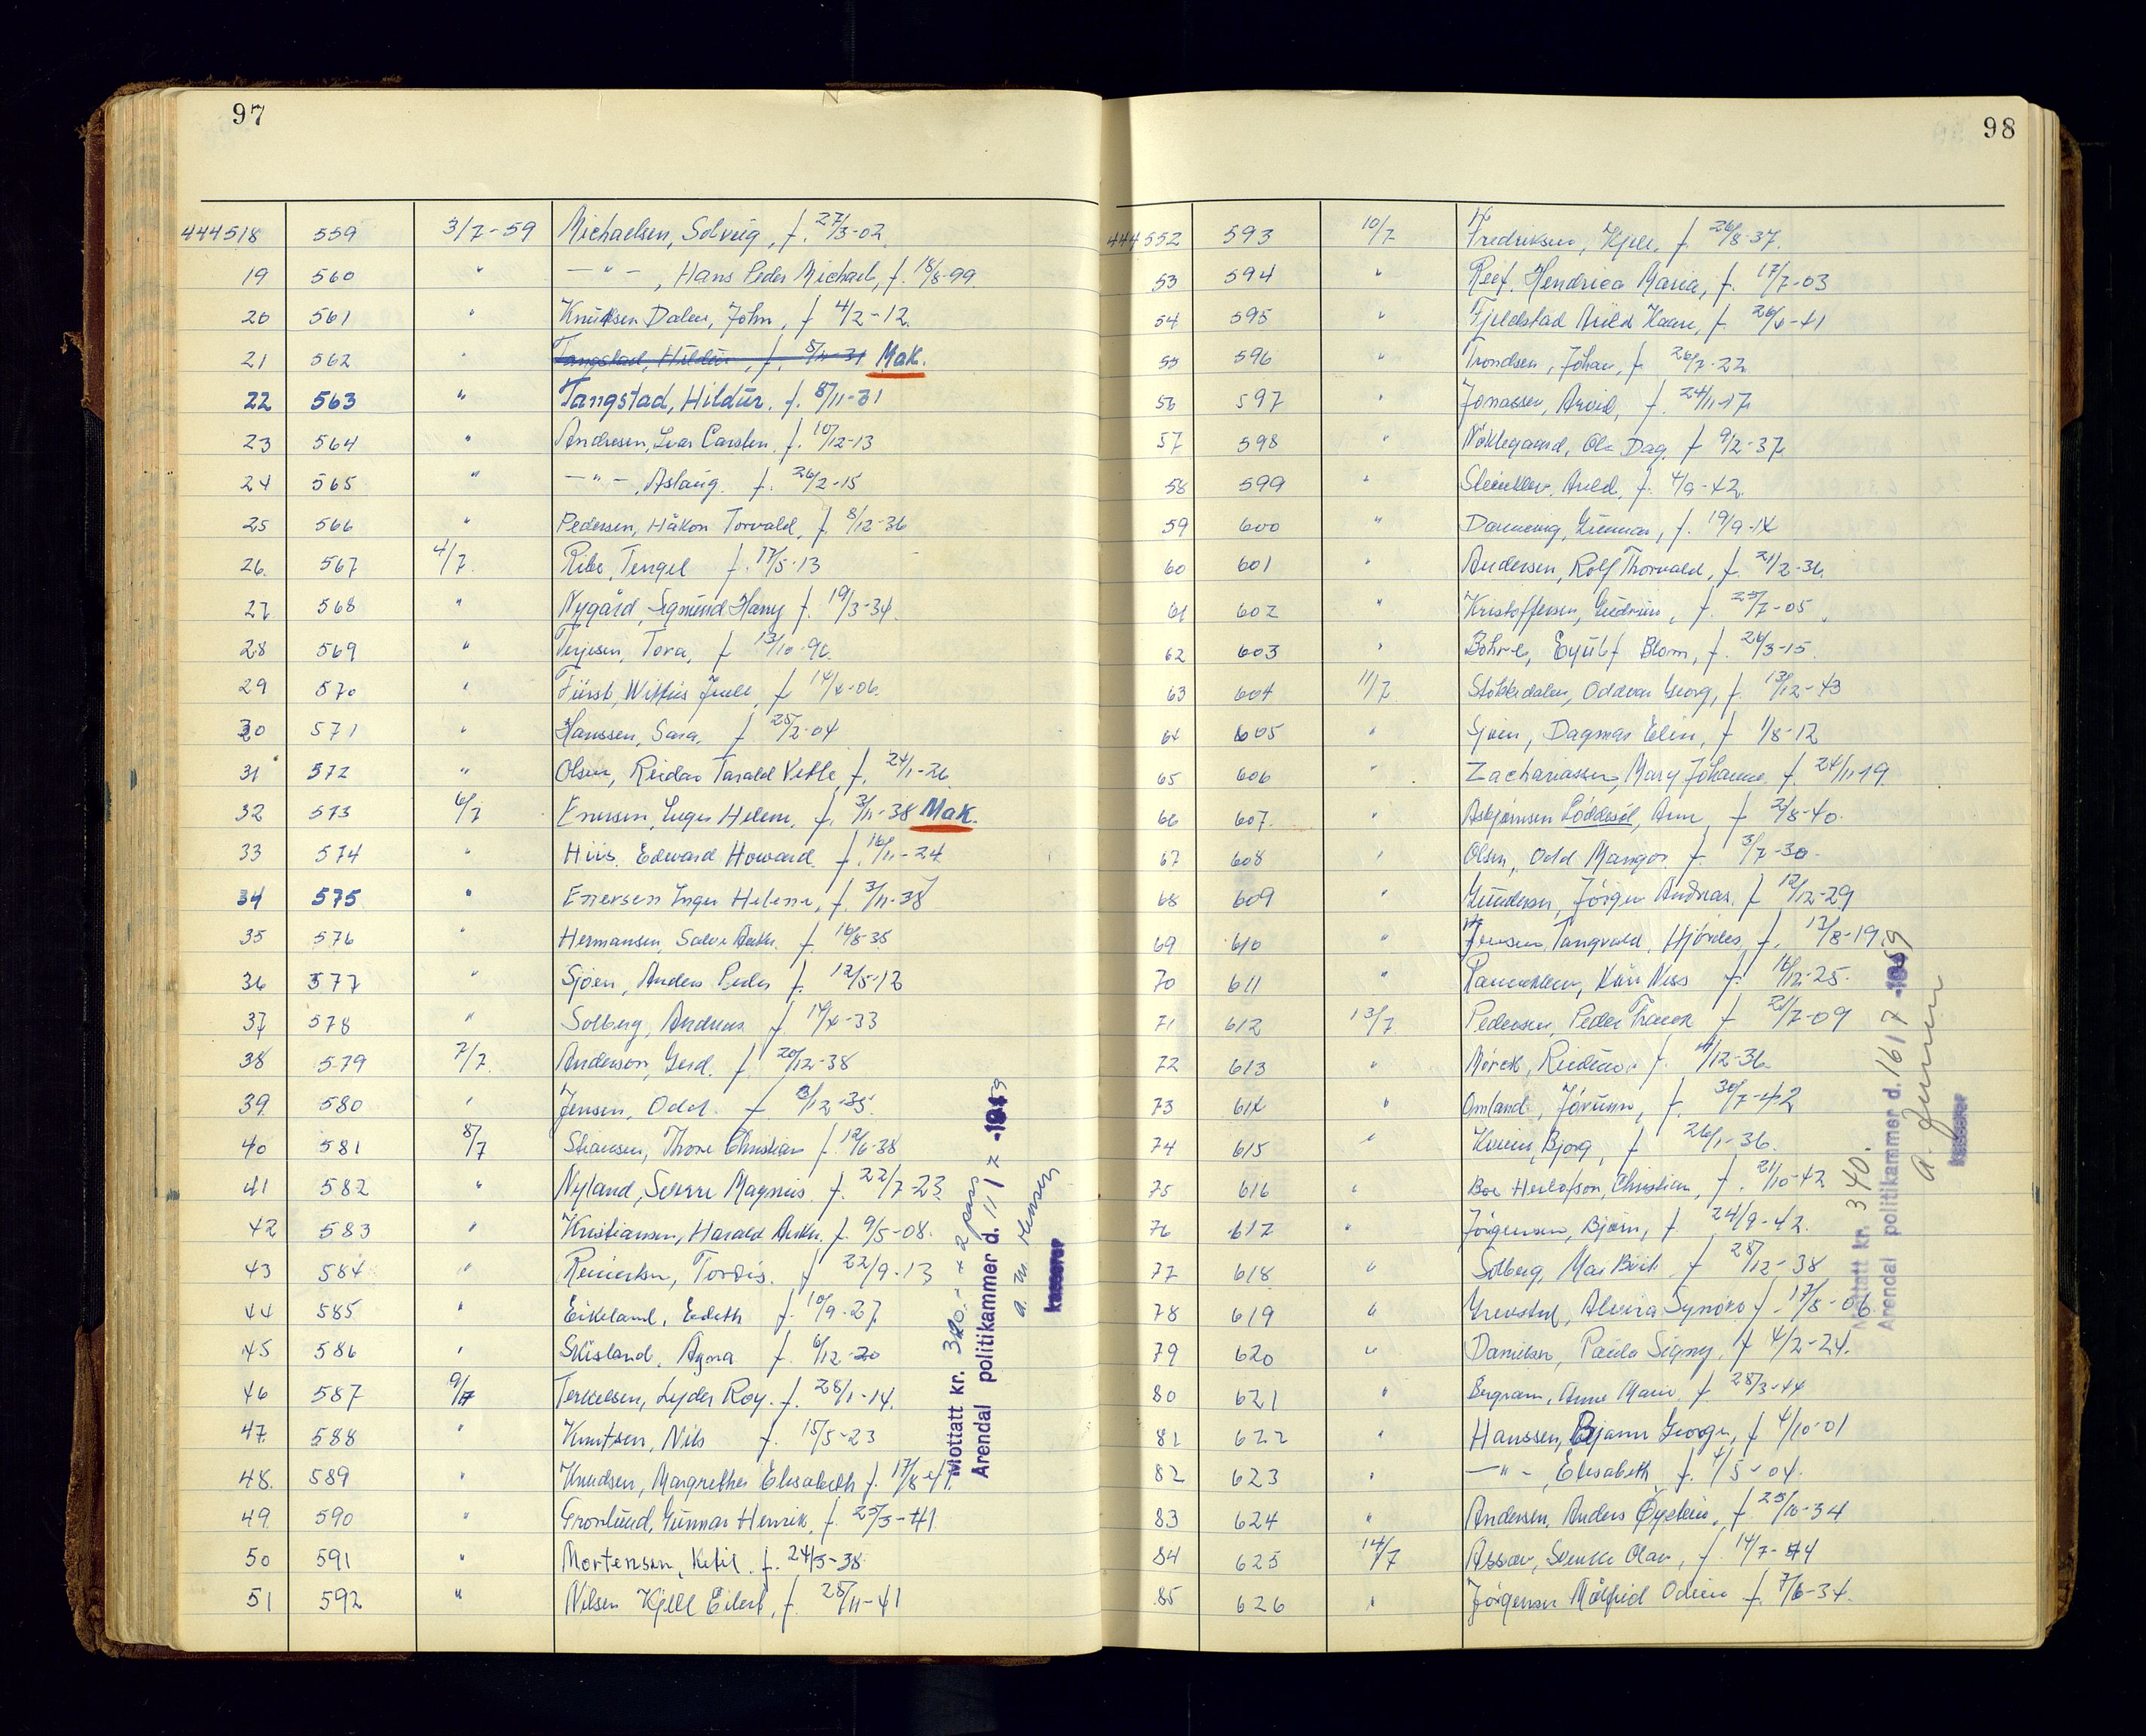 97
444518 559 3/7-59 Michaelsen, Solveig, f. 27/3-02
19 560 " —"—, Hans Peder Michael, f. 18/8-99
20 561 " Knudsen Dalen, John, f 4/2-12
21 562 " Tangstad, Hildur, f. 8/11-31 Mak.
22 563 " Tangstad, Hildur. f. 8/11-31
23 564 " Andresen, Ivar Carsten, f. 10/12-13
24 565 " —"—, Aslaug. f. 26/2-15
25 566 " Pedersen, Håkon Torvald, f. 8/12-36
26. 567 4/7. Ribe, Tengel f. 17/5-13
27 568 " Nygård, Sigmund Harry f. 19/3-34.
28 569 " Terjesen, Tora, f 13/10-90.
29 570 " Fürst, f 14/4-06.
30 571 " Hanssen, Sara, f. 25/2-04
31 572 " Olsen, Reidar Tarald f. 24/1-26
32 573 6/7 Enersen, Inger Helene, f. 3/11-38 Mak.
33 574 " Hiis, Edward Howard f. 16/11-24
34 575 " Enersen Inger Helene, f. 3/11-38
35 576 " Hermansen, Salve f. 16/8-35
36 577 " Sjøen, Anders Peder f. 12/5-12
37 578 " Solberg, Andreas f. 14/4-33
38 579 7/7. Anderson, Gerd. f. 20/12-38
39. 580 " Jensen, Odd. f 13/12-35.
40 581 8/7 Thore Christian f. 12/6-38
41 582 " Nyland, Sverre Magnus. f. 22/7-23
42 583 " Kristiansen, Harald f. 9/5-08.
43 584 " Tordis. f 22/9-13
44 585 " Eikeland, Edith f. 10/9-27
45 586 " Agna f. 6/12-20
46 587 9/7 Terkelsen, Lyder Roy. f. 28/1-14.
47. 588 " Knutsen, Nils f. 15/5-23
48. 589 " Knudsen, Margrethe Elisabeth f. 17/8-47.
49. 590 " Grønlund, Gunnar Henrik, f. 25/3-41
50 591 " Mortensen, Ketil. f. 24/5-38
51 592 " Nilsen Kjell Eilert, f. 28/11-41
Mottatt kr. 340.- 2 pass
Arendal politikammer d. 11/7-1959
kasserer
98
444552 593 10/7 Fredriksen, Kjell, f. 26/8-37.
53 594 " Reef, Hendrica Maria, f. 17/7-03
54 595 " Fjeldstad Arild Haare, f. 26/4-41
55 596 " Trondsen, Johan, f 26/7-22
56 597 " Jonassen, Arvid, f. 24/11-17
57 598 " Nøklegaard, Ole Dag. f 9/2-37
58 599 " Arild, f. 4/9-42.
59 600 " Gunnar, f. 19/9-14
60 601 " Andersen, Rolf Thorvald, f. 21/2-36
61 602 " Kristoffersen, Gudrun, f. 25/7-05
62 603 " Eyulf Blom, f. 24/3-15.
63 604 11/7 Støkkedalen, Oddvar Georg, f. 13/12-43
64 605 " Sjøen, Dagmar Elin, f 1/8-12
65 606 " Zachariassen, Mary Johanne. f. 24/11-19.
66 607. " Asbjørnsen Løddesøl, Ann f 2/8-40.
67 608 " Olsen, Odd Mangor f. 3/7-30.
68 609 " Gundersen, Jørgen Andreas, f 12/12-29
69 610 " Jensen Tangvald, Hjørdis, f. 13/8-19
70 611 " Kåre Ness f. 16/12-25.
71 612 13/7. Pedersen, Peder f 21/7-09
72 613 " Mørck, Reidun. f. 11/12-36.
73 614 " Omland, Jorunn, f. 30/7-42
74 615 " Bjørg, f 26/1-36.
75 616 " Boe Herlofson, Christian, f. 21/10-42
76 617 " Jørgensen, Bjørn, f 24/9-42.
77 618 " Solberg, Mai Britt f 28/12-38
78 619 " Grevstad, Synøve f. 17/8-06.
79 620 " Danielsen, Paula Signy, f 4/2-24.
80 621 " Bergram, Anne Marie f. 28/3-44
81 622 " Hanssen, Bjarne George, f 4/10-01
82 623 " —"—, Elisabeth f. 4/5-04.
83 624 " Andersen, Anders Øystein, f. 25/10-34
84 625 14/7 Assev, Olav, f. 14/7-44
85 626 " Jørgensen Målfrid Odine f. 7/6-34.
Mottatt kr. 340.
Arendal politikammer d. 16/7-1959
A. Jensen
kasserer